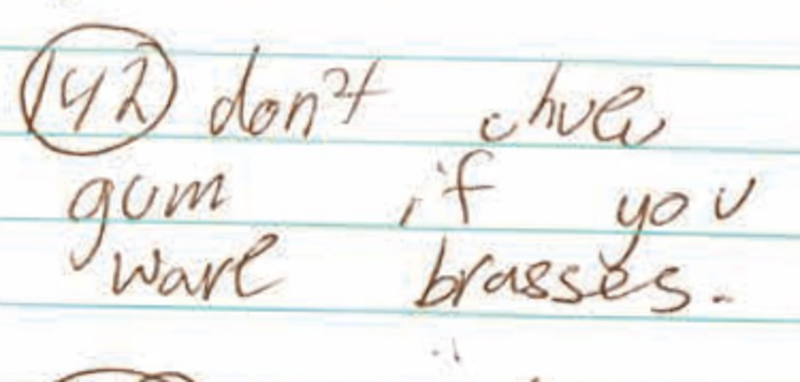 142 don't chuw
gum if you
ware brasses.